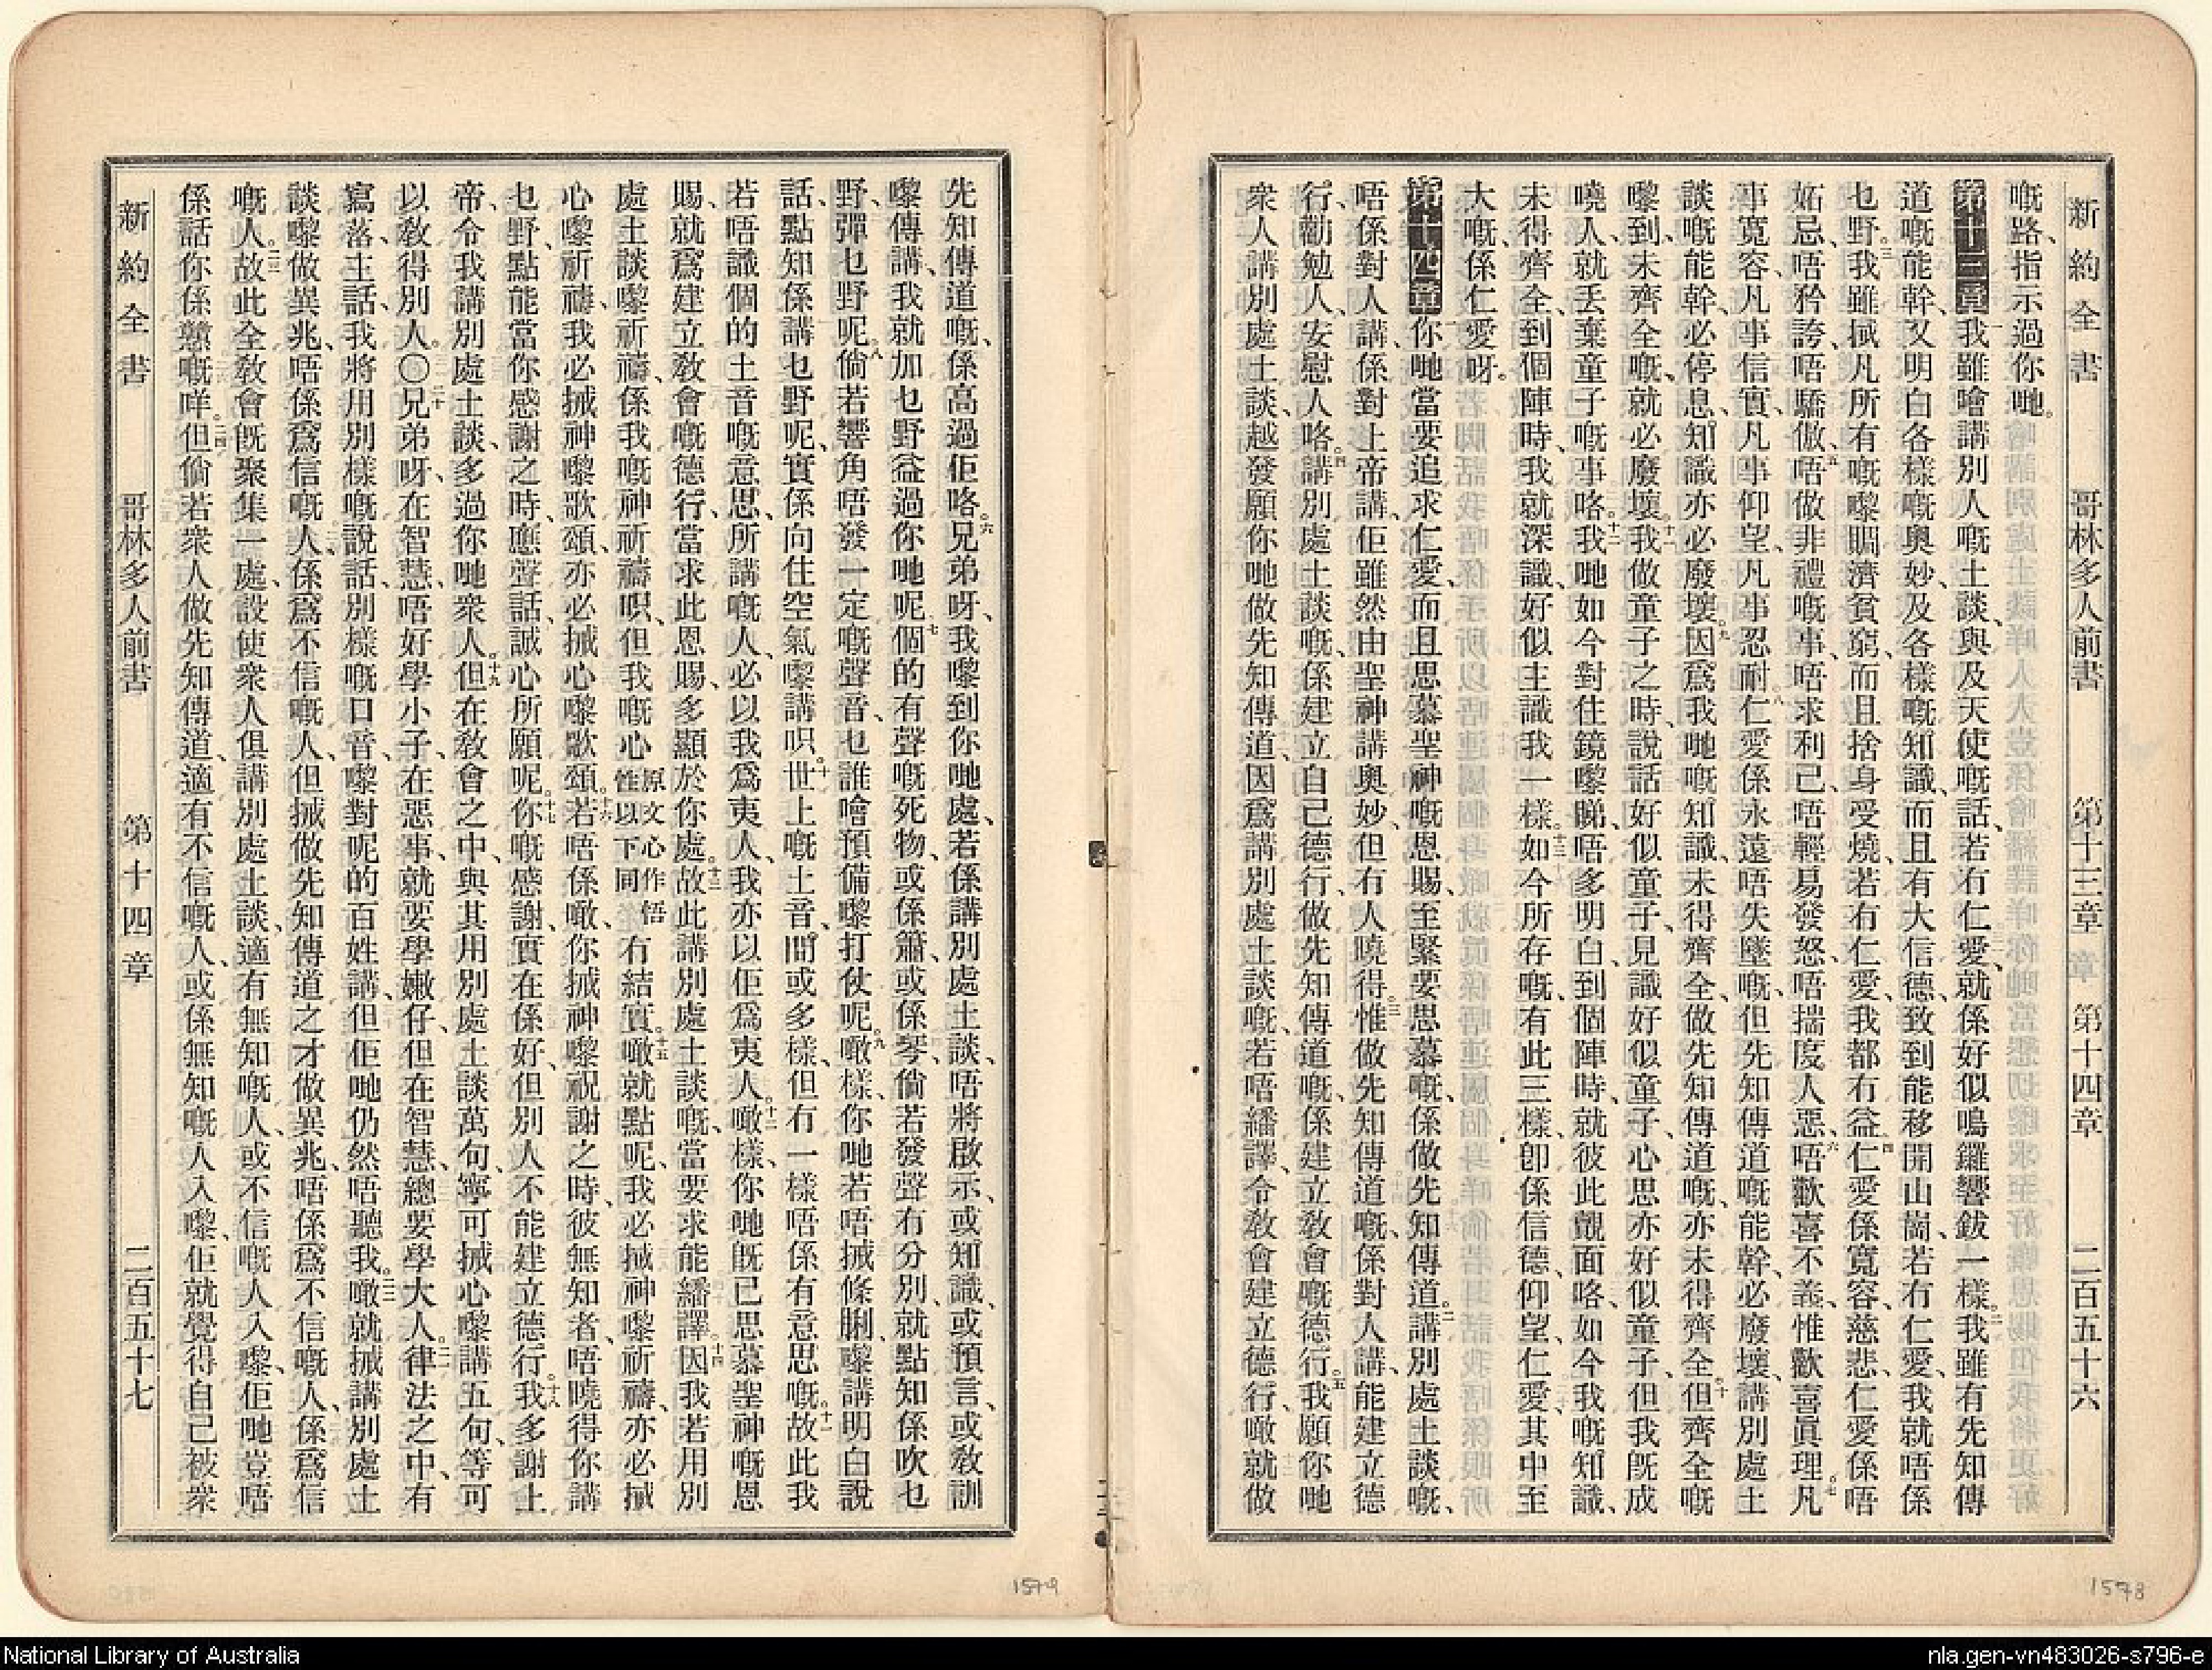 新約全書　哥林多人前書　第十三章　第十四章　二百五十六
嘅路、指示過你哋。
第十三章 一我雖噲講別人嘅土談、與及天使嘅話、若冇仁愛、就係好似鳴鑼響鈸一樣。二我雖有先知傳
道嘅能幹、又明白各樣嘅奧妙、及各樣嘅知識、而且有大信德、致到能移開山崗、若冇仁愛、我就唔係
乜野。三我雖揻凡所有嘅嚟賙濟貧窮、而且捨身受燒、若冇仁愛、我都冇益。四仁愛係寬容、慈悲、仁愛係唔
妬忌、唔矜誇、唔驕傲、五唔做非禮嘅事、唔求利己、唔輕易發怒、唔揣度人惡、六唔歡喜不義、惟歡喜眞理。七凡
事寬容、凡事信實、凡事仰望、凡事忍耐。八仁愛係永遠唔失墜嘅、但先知傳道嘅能幹、必廢壞、講別處土
談嘅能幹、必停息、知識亦必廢壞。九因爲我哋嘅知識、未得齊全、做先知傳道嘅、亦未得齊全。十但齊全嘅
嚟到、未齊全嘅、就必廢壞。十一我做童子之時、說話好似童子、見識好似童子、心思亦好似童子、但我旣成
曉人、就丢棄童子嘅事咯。十二我哋如今對住鏡嚟睇、唔多明白、到個陣時、就彼此覿面咯、如今我嘅知識、
未得齊全、到個陣時、我就深識、好似主識我一樣。十三如今所存嘅、有此三樣、卽係信德、仰望、仁愛、其中至
大嘅、係仁愛呀。
第十四章 一你哋當要追求仁愛、而且思慕聖神嘅恩賜、至緊要思慕嘅、係做先知傳道。二講別處土談嘅、
唔係對人講、係對上帝講、佢雖然由聖神講奧妙、但冇人曉得。三惟做先知傳道嘅、係對人講、能建立德
行、勸勉人、安慰人咯。四講別處土談嘅、係建立自己德行、做先知傳道嘅、係建立敎會嘅德行。五我願你哋
衆人講別處土談、越發願你哋做先知傳道、因爲講別處土談嘅、若唔繙譯、令敎會建立德行、噉就做
先知傳道嘅、係高過佢咯。六兄弟呀、我嚟到你哋處、若係講別處土談、唔將啟示、或知識、或預言、或敎訓
嚟傳講、我就加乜野益過你哋呢。七個的有聲嘅死物、或係簫、或係琴、倘若發聲冇分別、就點知係吹乜
野、彈乜野呢。八倘若響角唔發一定嘅聲音、乜誰噲預備嚟打仗呢。九噉樣、你哋若唔揻條脷、嚟講明白說
話、點知係講乜野呢、實係向住空氣嚟講呮。十世上嘅土音、間或多樣、但冇一樣唔係有意思嘅。十一故此我
若唔識個的土音嘅意思、所講嘅人、必以我爲夷人、我亦以佢爲夷人。十二噉樣、你哋旣已思慕聖神嘅恩
賜、就爲建立敎會嘅德行、當求此恩賜、多顯於你處。十三故此講別處土談嘅、當要求能繙譯。十四因我若用別
處土談嚟祈禱、係我嘅神祈禱呮、但我嘅心原文心作悟性以下同冇結實。十五噉就點呢、我必揻神嚟祈禱、亦必揻
心嚟祈禱、我必揻神嚟歌頌、亦必揻心嚟歌頌。十六若唔係噉、你揻神嚟祝謝之時、彼無知者、唔曉得你講
乜野、點能當你感謝之時、應聲話、誠心所願呢。十七你嘅感謝、實在係好、但別人不能建立德行。十八我多謝上
帝、令我講別處土談、多過你哋衆人。十九但在敎會之中、與其用別處土談萬句、寧可揻心嚟講五句、等可
以敎得別人。〇二十兄弟呀、在智慧、唔好學小子、在惡事、就要學嫩仔、但在智慧、總要學大人。二一律法之中、有
寫落、主話、我將用別樣嘅說話、別樣嘅口音、嚟對呢的百姓講、但佢哋仍然唔聽我。二二噉就揻講別處土
談嚟做異兆、唔係爲信嘅人、係爲不信嘅人、但揻做先知傳道之才做異兆、唔係爲不信嘅人、係爲信
嘅人。二三故此全敎會旣聚集一處、設使衆人俱講別處土談、適有無知嘅人、或不信嘅人入嚟、佢哋豈唔
係話你係戇嘅咩。二四但倘若衆人做先知傳道、適有不信嘅人、或係無知嘅人入嚟、佢就覺得自己被衆
新約全書　哥林多人前書　第十四章　二百五十七
1579
1578
National Library of Australia
nla.gen-vn483026-s796-e